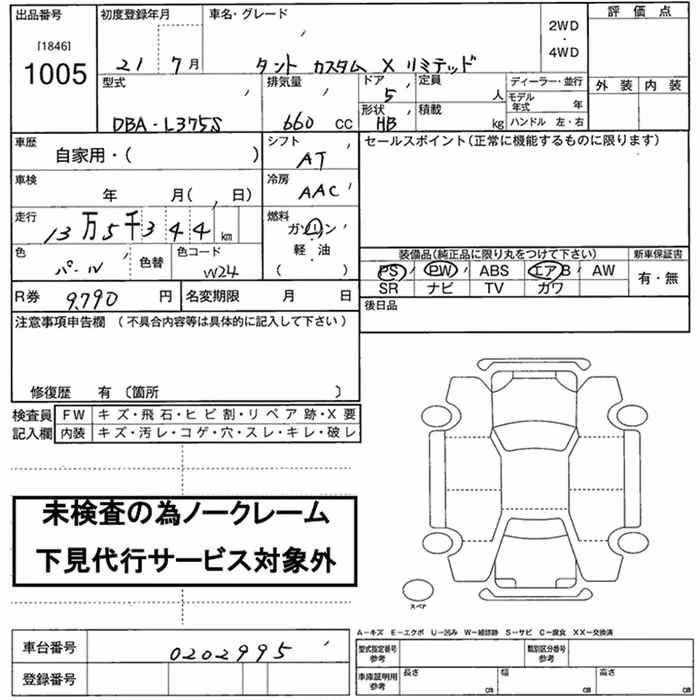 出品番号 初度登録年月 車名・グレード 評価点
[1846]
1005
21年 7月 タント カスタム X リミテッド 2WD・4WD
型式 排気量 ドア 定員 ディーラー・並行 外装 内装
DBA-L375S 660 CC 5 人 モデル年式 年
形状 HB 積載 kg ハンドル 左・右
車歴 自家用・( ) シフト AT セールスポイント(正常に機能するものに限ります)
車検 年 月( 日) 冷房 AAC
走行 13万5千344 km 燃料 ガソリン
軽油
( )
色 パール 色替 色コード W24
装備品(純正品に限り丸をつけて下さい) 新車保証書
PS PW ABS エアB AW 有・無
SR ナビ TV カワ
R券 9,790 円 名変期限 月 日 後日品
注意事項申告欄 (不具合内容等は具体的に記入して下さい)
修復歴 有 〔箇所 〕
検査員 FW キズ・飛石・ヒビ割・リペア跡・X要
記入欄 内装 キズ・汚レ・コゲ・穴・スレ・キレ・破レ
未検査の為ノークレーム
下見代行サービス対象外
スペア
A－キズ E－エクボ U－凹み W－補修跡 S－サビ C－腐食 XX－交換済
車台番号 0202995 型式指定番号 参考 類別区分番号 参考
登録番号 車庫証明用 参考 長さ cm 幅 cm 高さ cm